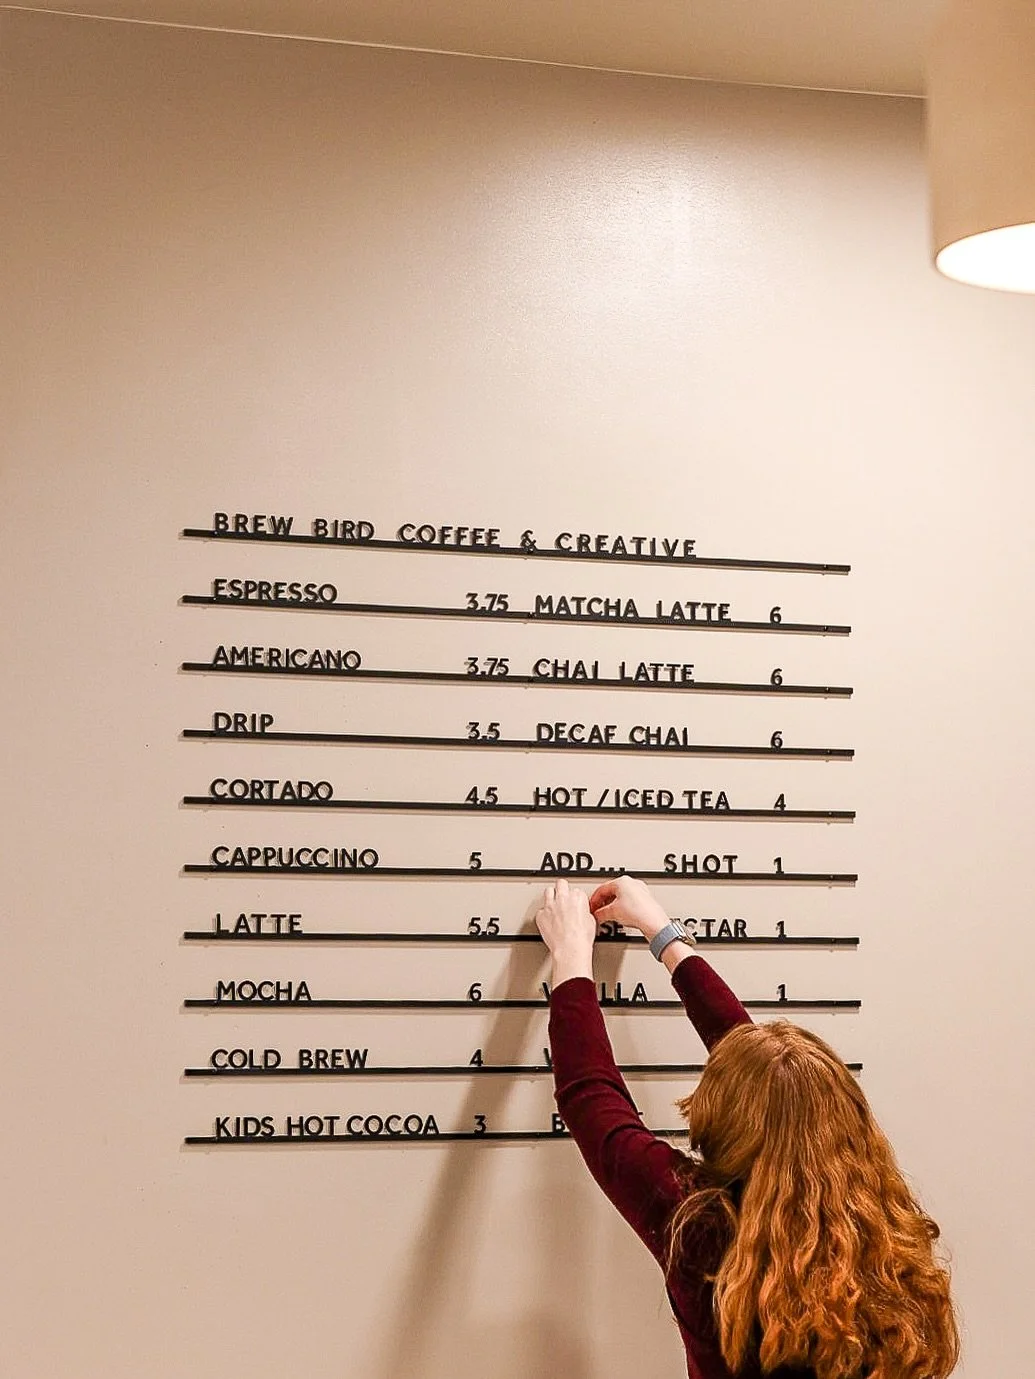 BREW BIRD COFFEE & CREATIVE
ESPRESSO 3.75 MATCHA LATTE 6
AMERICANO 3.75 CHAI LATTE 6
DRIP 3.5 DECAF CHAI 6
CORTADO 4.5 HOT / ICED TEA 4
CAPPUCCINO 5 ADD... SHOT 1
LATTE 5.5 1
MOCHA 6 1
COLD BREW 4
KIDS HOT COCOA 3